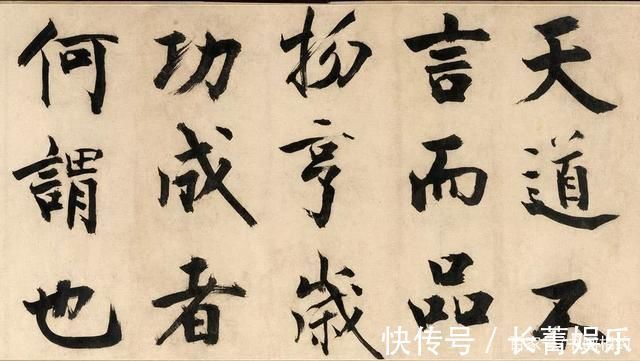 天道不
言而品
物亨歲
功成者
何謂也
快传号 / 娱乐